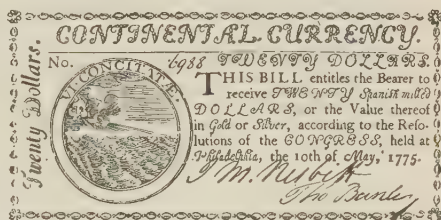 CONTINENTAL CURRENCY.
No. 6988 TWENTY DOLLARS.
THIS BILL entitles the Bearer to
receive TWENTY Spanish milled
DOLLARS, or the Value thereof
in Gold or Silver, according to the Reso-
lutions of the CONGRESS, held at
Philadelphia, the 10th of May, 1775.
J M Nesbitt
Tho Barclay
Twenty Dollars.
VI CONCITATÆ.